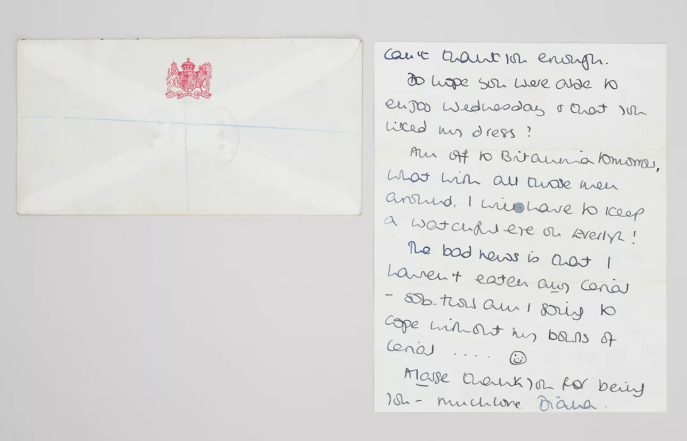 can't thank you enough.
Do hope you were able to
enjoy Wednesday & that you
liked my dress!
Am off to Britannia tomorrow,
what with all those men
around. I will have to keep
a watchful eye on Evelyn!
The bad news is that I
haven't eaten any Cerial
- sob. How am I going to
cope without my bowls of
Cerial .... ☺
A large thank you for being
you - much love. Diana.